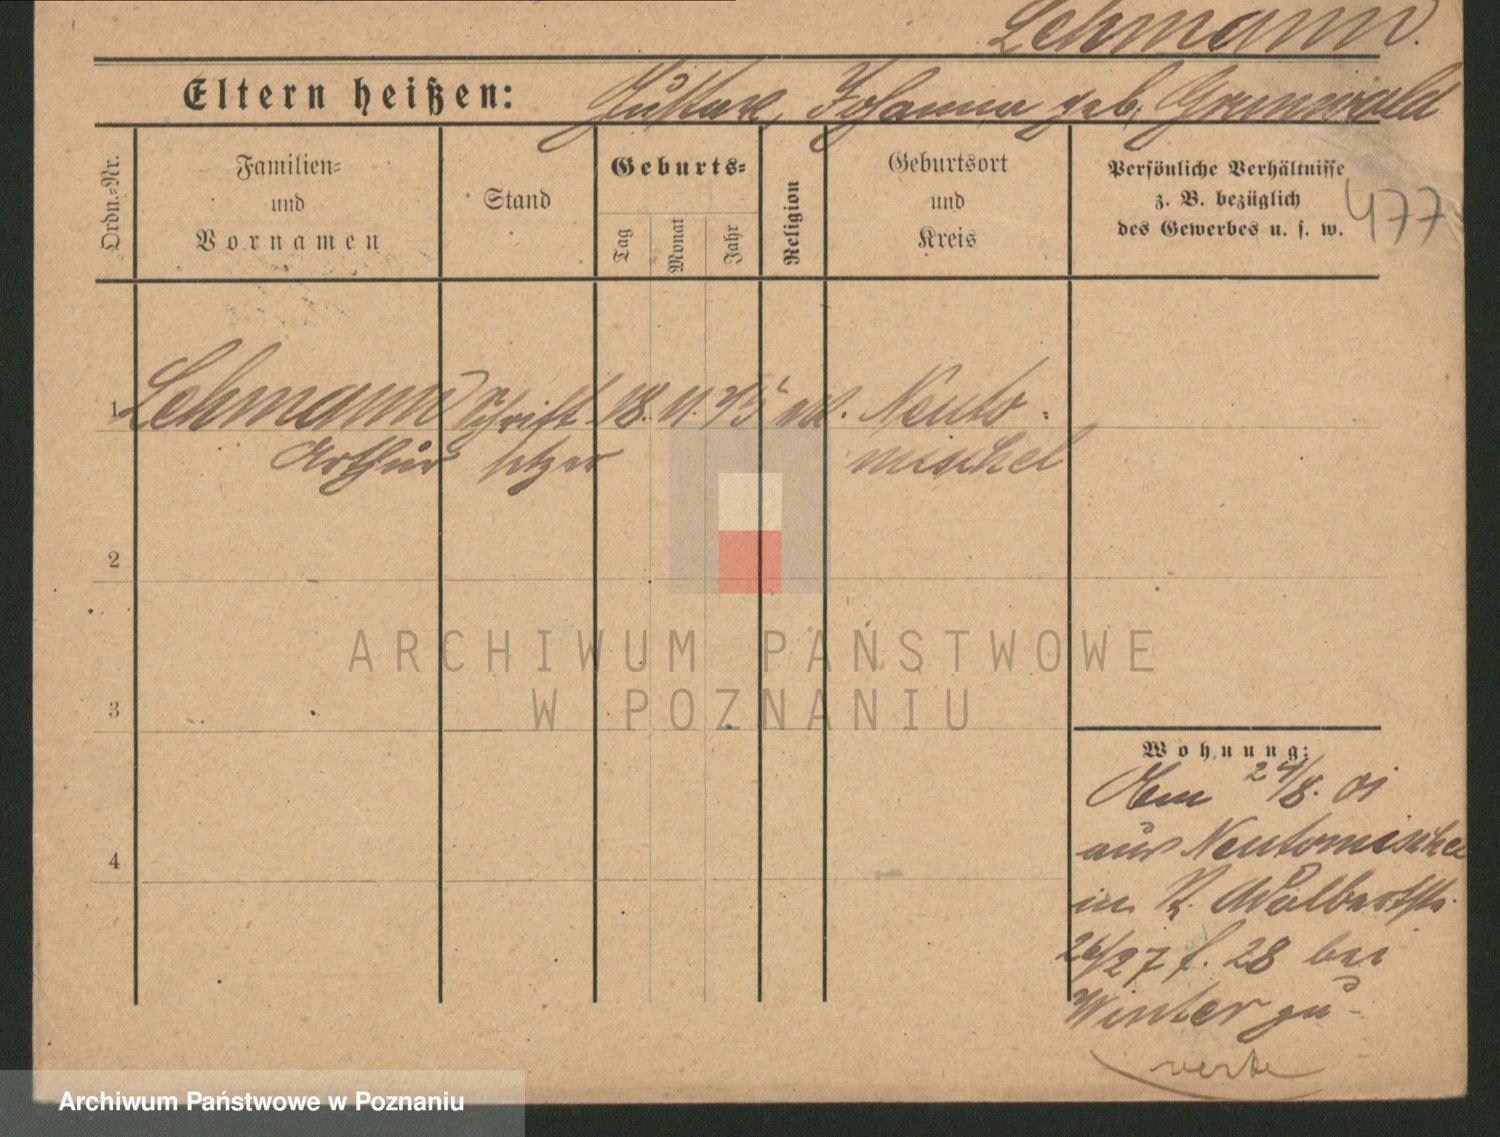 Lehmann.
Eltern heißen: Gustav, Johanna geb. Grunwald
Ordn.=Nr.
Familien=
und
Vornamen
Stand
Geburts=
Tag
Monat
Jahr
Religion
Geburtsort
und
Kreis
Persönliche Verhältnisse
z. B. bezüglich
des Gewerbes u. s. w.
477
1 Lehmann Schrift 18. 11. 75 Neuto
Arthur setzer mischel
2
3
4
ARCHIWUM PAŃSTWOWE
W POZNANIU
Wohnung:
24/8. 01
aus Neutomischel
in
26/27 f. 28 bei
Winter zu
verte
Archiwum Państwowe w Poznaniu